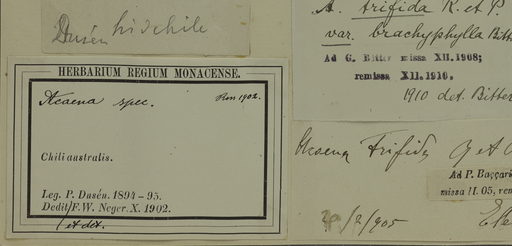 Dusén
HERBARIUM REGIUM MONACENSE.
Acaena spec.
1902.
Chili australis.
Leg. P. Dusén. 1894–95.
Dedit F. W. Neger. X. 1902.
et det.
A. trifida R. et P.
var. brachyphylla Bitte
Ad G. Bitter missa XII. 1908;
remissa XII. 1910.
1910 det. Bitter
Acaena trifida
Ad P. Baccari
missa II. 05, rem
/2/905